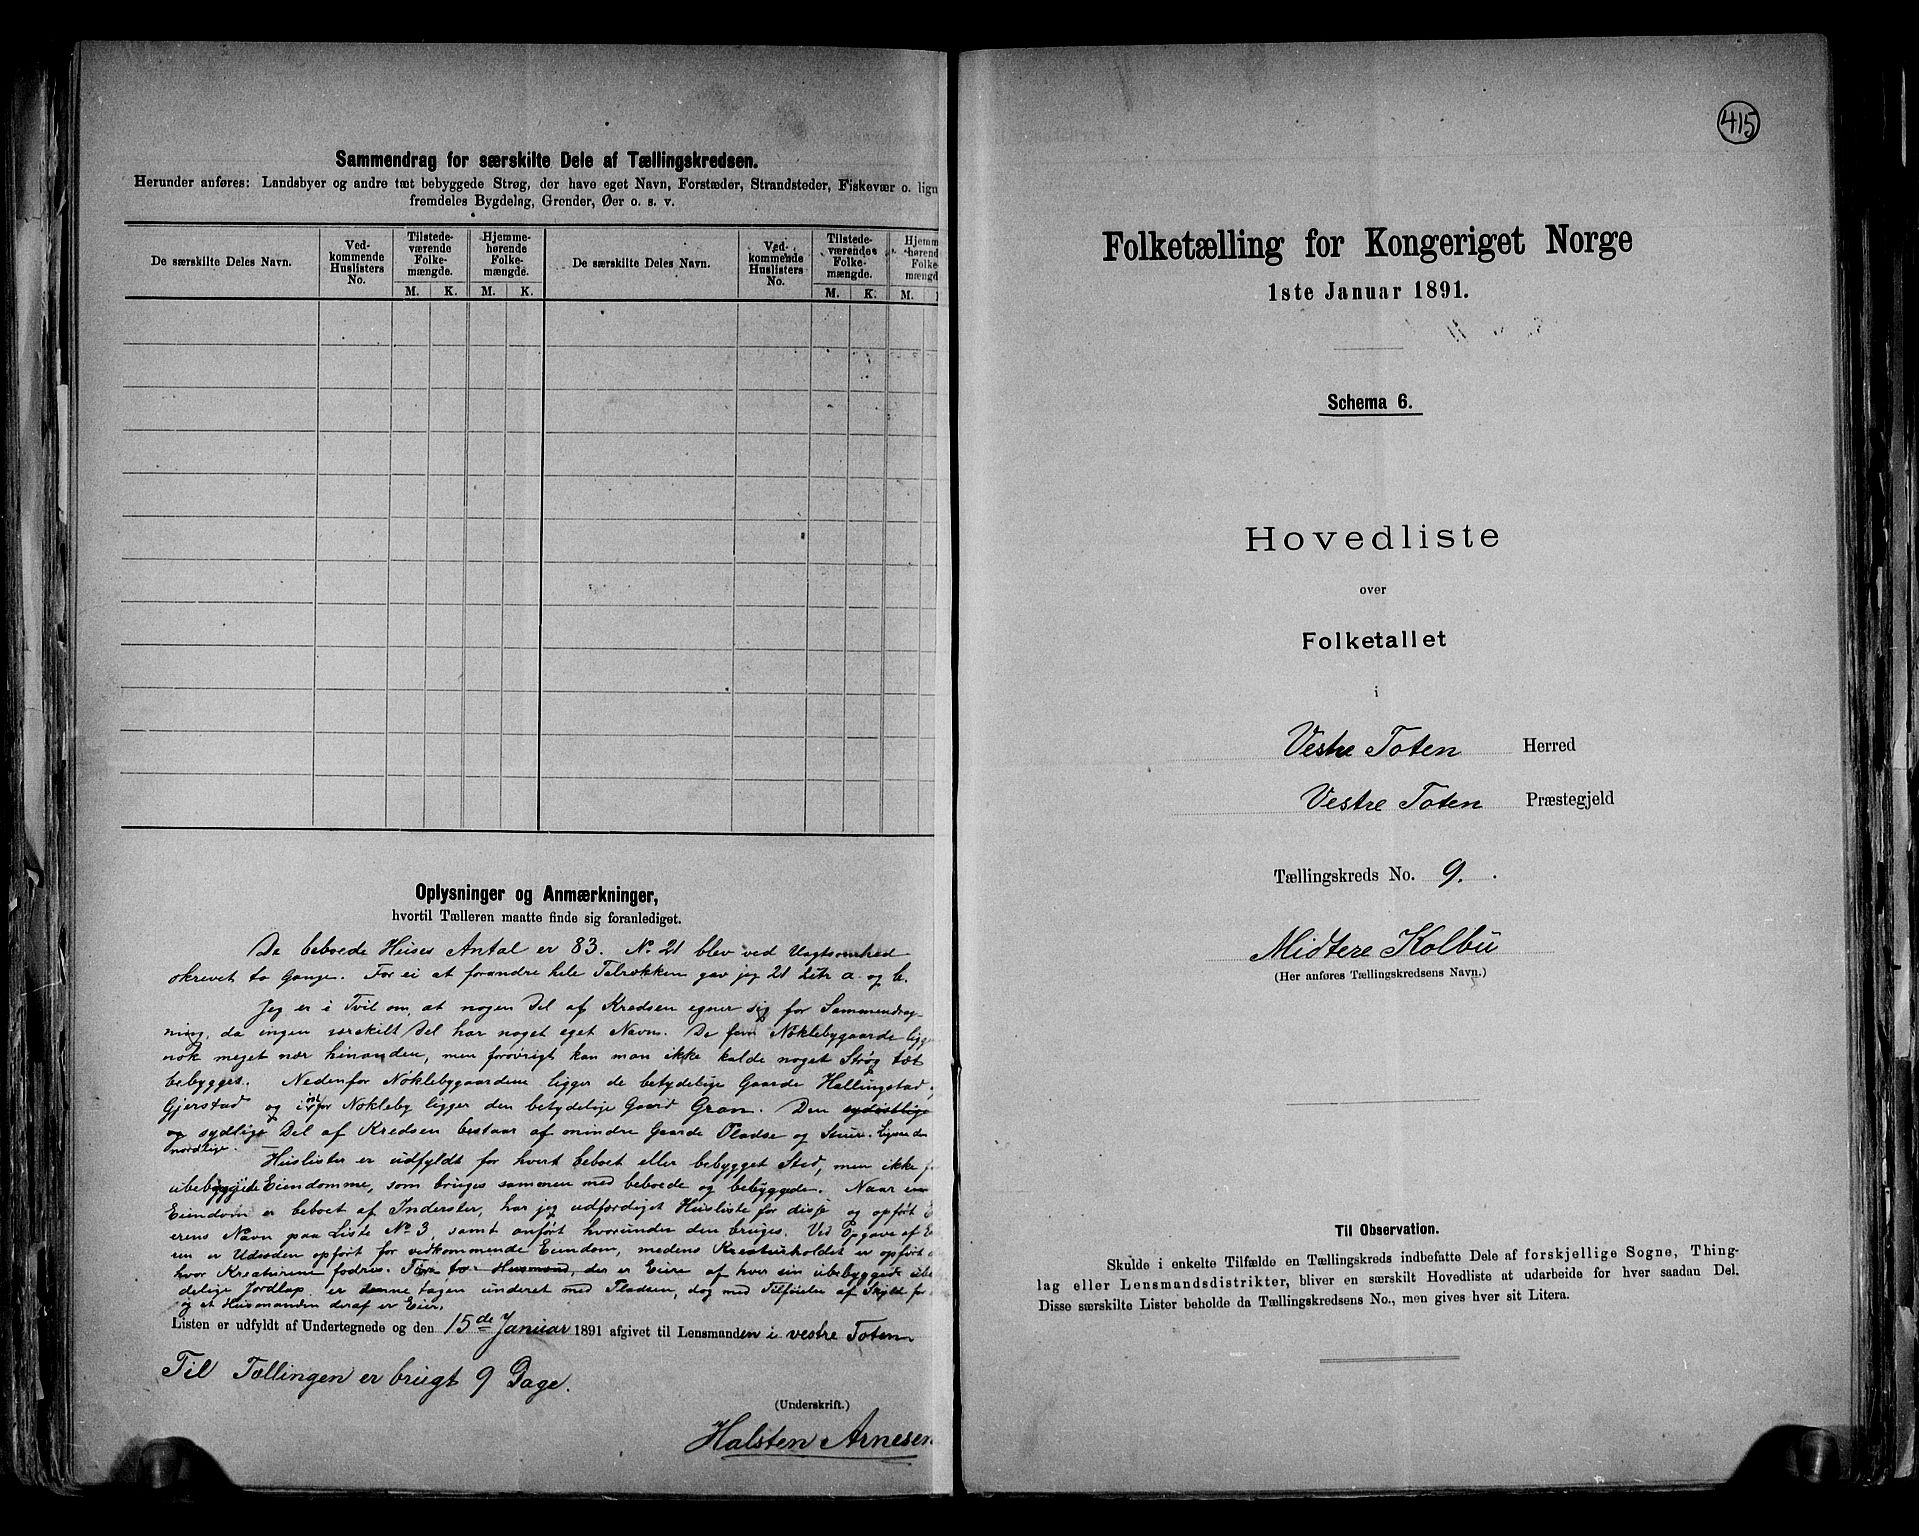 Sammendrag for særskilte Dele af Tællingskredsen.
Herunder anføres: Landsbyer og andre tæt bebyggede Strøg, der have eget Navn, Forstæder, Strandsteder, Fiskevær o. lign
fremdeles Bygdelag, Grender, Øer o. s. v.
De særskilte Deles Navn.
Ved-
kommende
Huslisters
No.
Tilstede-
værende
Folke-
mængde.
Hjemme-
hørende
Folke-
mængde.
M. K. M. K.
De særskilte Deles Navn.
Ved-
kommende
Huslisters
No.
Tilstede-
værende
Folke-
mængde.
Hjemm
hørend
Folke
mængd
M. K. M.
Oplysninger og Anmærkninger,
hvortil Tælleren maatte finde sig foranlediget.
De beboede Huses Antal er 83. No 21 blev ved Uagtsomhed
skrevet to Gange. For ei at forandre hele Talrækken gav jeg 21 Litr. a. og b.
Jeg er i Tvil om, at nogen Del af Kredsen egner sig for Sammendrag-
ning, da ingen særskilt Del har noget eget Navn. De fem Nøklebygaarde ligg
nok meget nær hinanden, men forøvrigt kan man ikke kalde noget Strøg tæt
bebygget. Nedenfor Nøklebygaardene ligger de betydelige Gaarde Hallingstad,
Gjerstad og istfor Nøkleby ligger den betydelige Gaard Gran. Den sydøstlige
og sydlige Del af Kredsen bestaar af mindre Gaarde Pladse og Stuer. Ligesaa den
nordlige.
Huslister er udfyldt for hvert beboet eller bebygget Sted, men ikke f
ubebyggede Eiendomme, som bruges sammen med beboede og bebyggede. Naar en
Eiendom er beboet af Inderster, har jeg udfærdiget Husliste for disse og opført E
erens Navn paa Liste No 3, samt anført hvorunder den bruges. Ved Opgave af E
en er Udsæden opført for vedkommende Eiendom, medens Kreaturholdet er opført
hvor Kreaturene fodres. Husmænd, der er Eiere af hver sin ubebyggede ube
delige Jordlap er denne tagen underet med Pladsen, dog med Tilføielse af Skyld for
og at Husmanden deraf er Eier.
Listen er udfyldt af Undertegnede og den 15de Januar 1891 afgivet til Lensmanden i vestre Toten
Til Tællingen er brugt 9 Dage.
(Underskrift.)
Halsten Arnesen
415
Folketælling for Kongeriget Norge
1ste Januar 1891.
Schema 6.
Hovedliste
over
Folketallet
i
Vestre Toten Herred
Vestre Toten Præstegjeld
Tællingskreds No. 9.
Midtere Kolbu
(Her anføres Tællingskredsens Navn.)
Til Observation.
Skulde i enkelte Tilfælde en Tællingskreds indbefatte Dele af forskjellige Sogne, Thing-
lag eller Lensmandsdistrikter, bliver en særskilt Hovedliste at udarbeide for hver saadan Del.
Disse særskilte Lister beholde da Tællingskredsens No., men gives hver sit Litera.